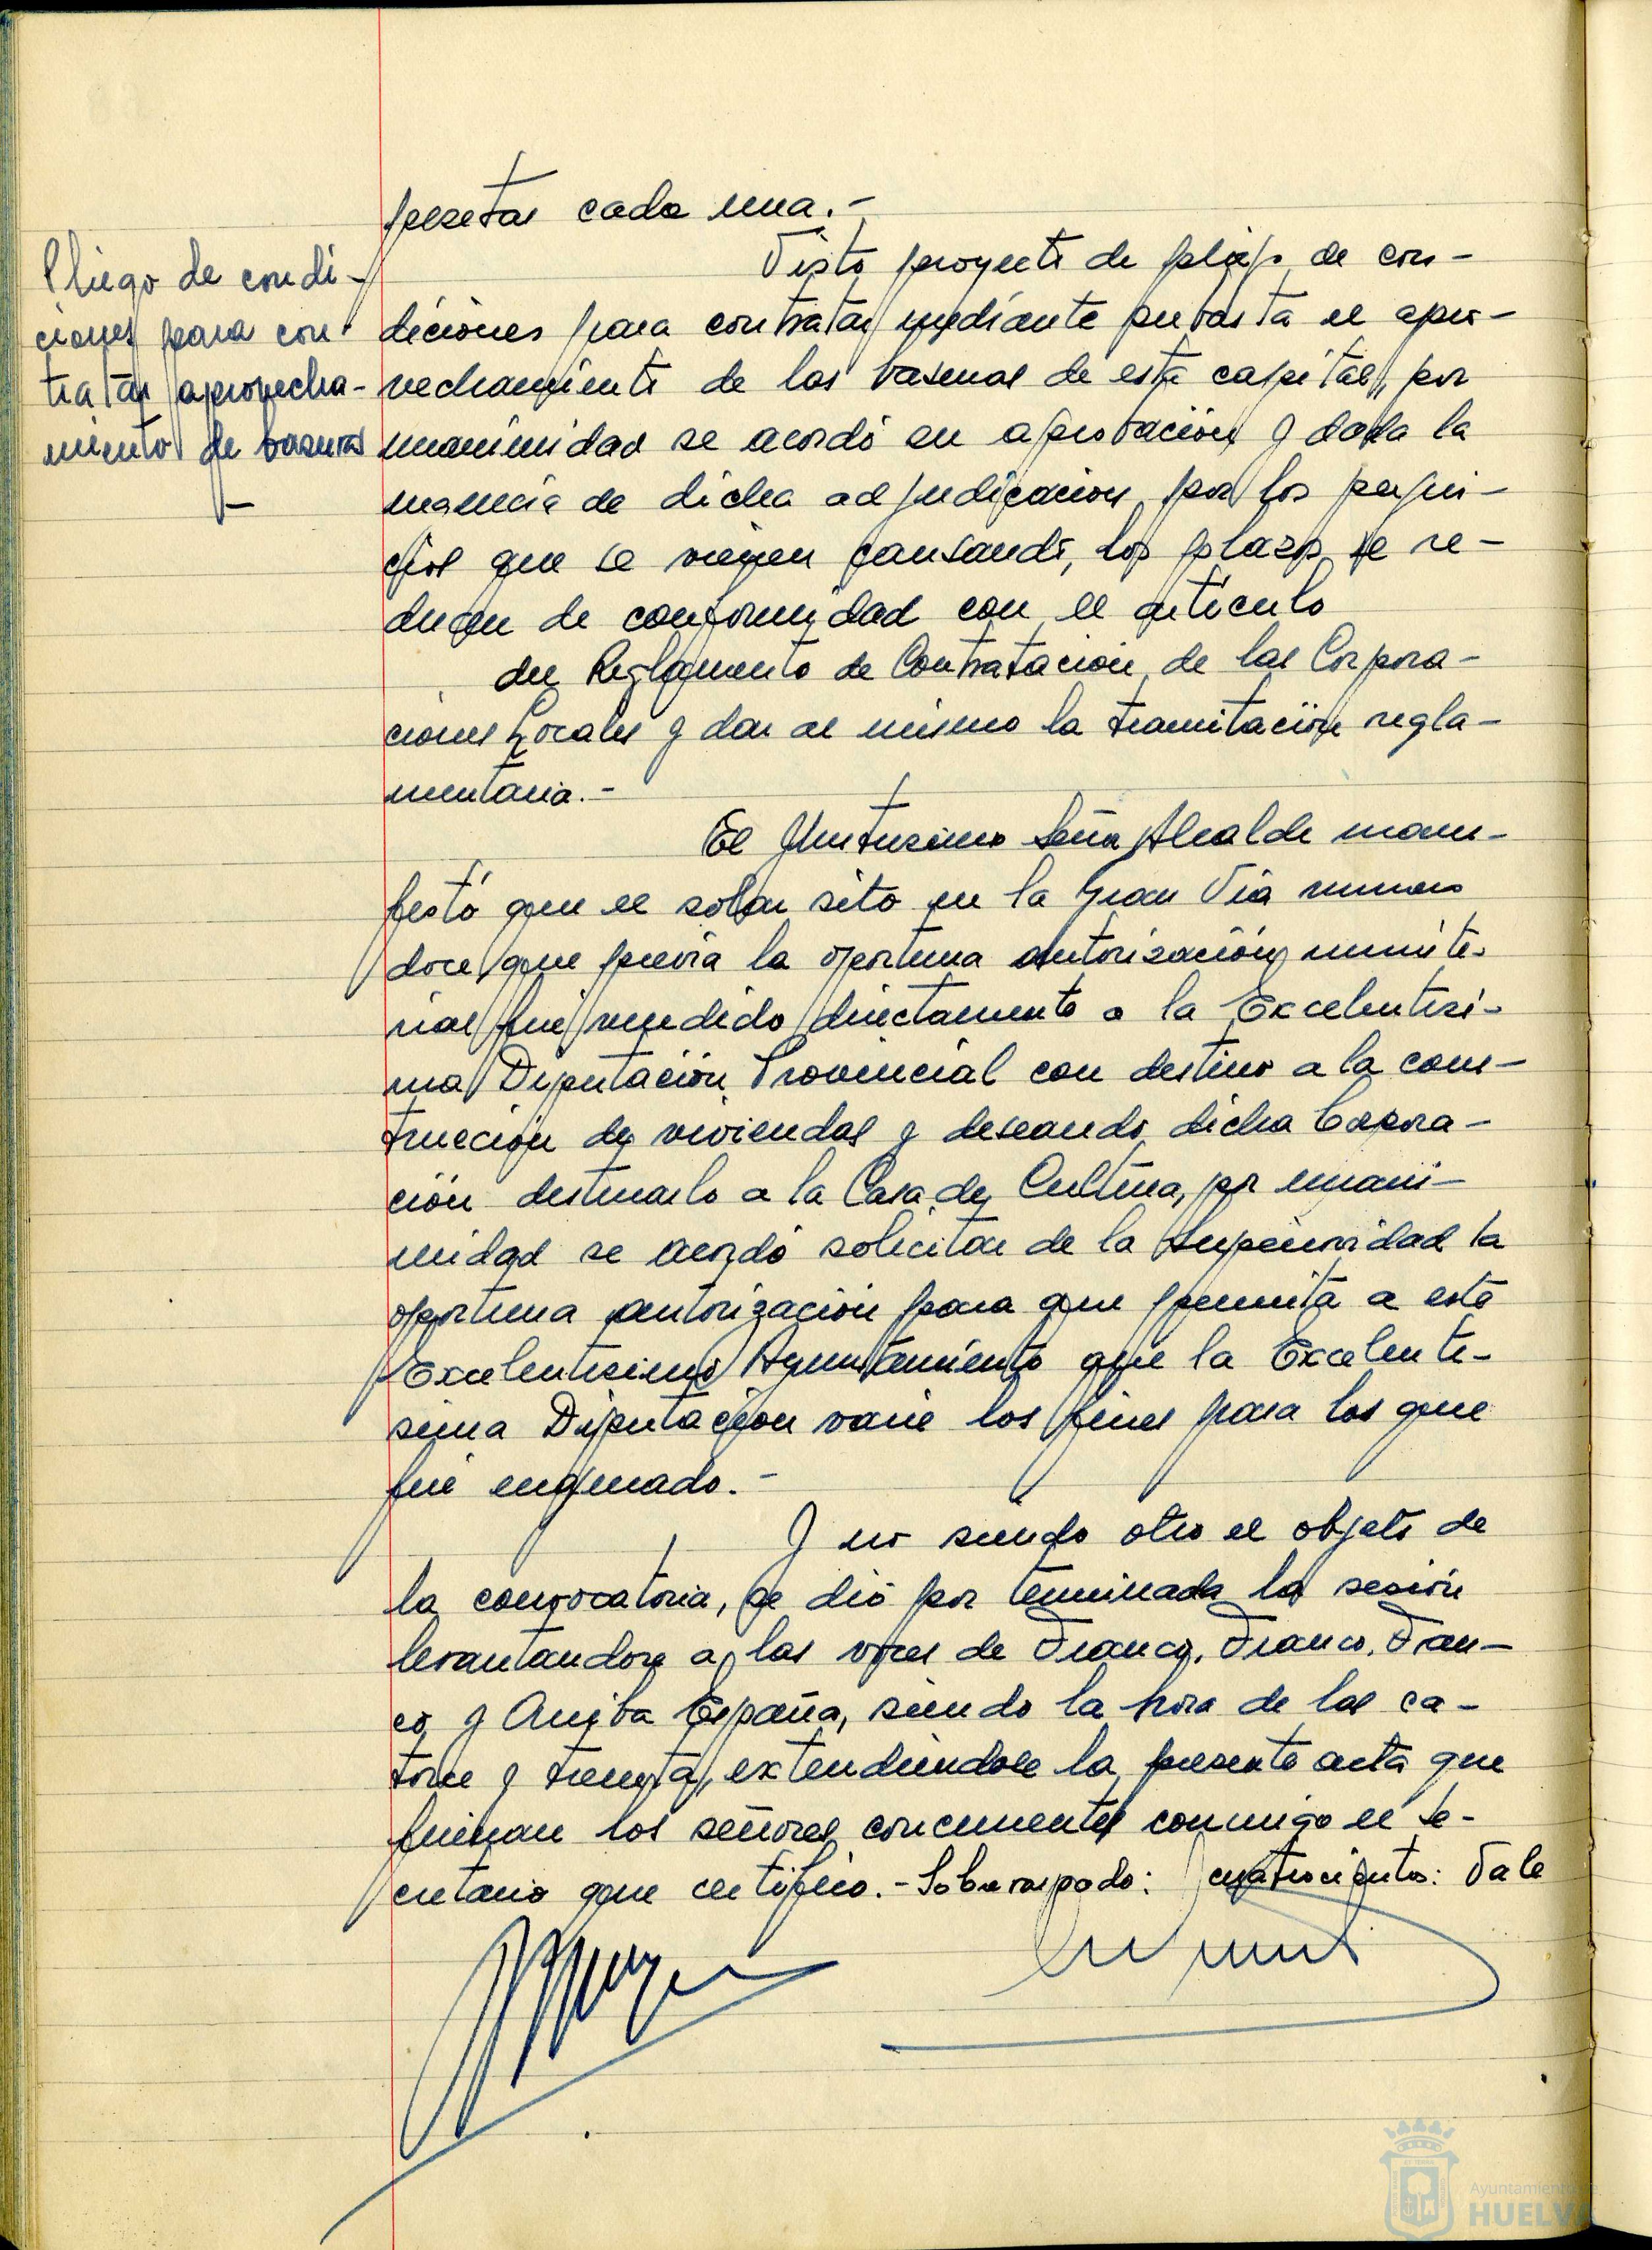 pesetas cada una.-
Pliego de condi-
ciones para con-
tratar aprovecha-
miento de basuras
Visto proyecto de pliego de con-
diciones para contratar mediante subasta el apro-
vechamiento de las basuras de esta capital, por
unanimidad se acordó su aprobación y dada la
urgencia de dicha adjudicación, por los perjui-
cios que se vienen causando, los plazos se re-
ducen de conformidad con el artículo
del Reglamento de Contratación de las Corpora-
ciones Locales y dar al mismo la tramitación regla-
mentaria.-
El Ilustrísimo Señor Alcalde mani-
festó que el solar sito en la Gran Vía número
doce, que previa la oportuna autorización ministe-
rial fué vendido directamente a la Excelentísi-
ma Diputación Provincial con destino a la cons-
trucción de viviendas y deseando dicha Corpora-
ción destinarlo a la Casa de Cultura, por unani-
midad se acordó solicitar de la Superioridad la
oportuna autorización para que permita a este
Excelentísimo Ayuntamiento que la Excelentí-
sima Diputación varíe los fines para los que
fué enajenado.-
Y no siendo otro el objeto de
la convocatoria, se dió por terminada la sesión
levantandose a las voces de Franco, Franco, Fran-
co y Arriba España, siendo la hora de las ca-
torce y treinta, extendiéndose la presente acta que
firman los señores concurrentes conmigo el Se-
cretario que certifico.- Sobrerraspado: cuatrocientas: Vale
Ayuntamiento de
HUELVA